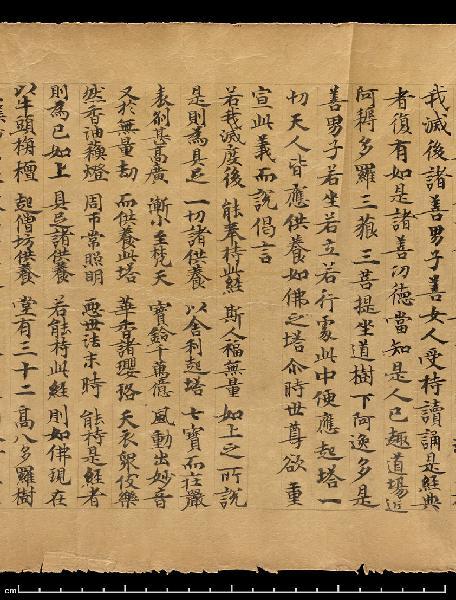 我滅後諸善男子善女人受持讀誦是經典
者復有如是諸善功德當知是人已趣道場近
阿耨多羅三藐三菩提坐道樹下阿逸多是
善男子若坐若立若行處此中便應起塔一
切天人皆應供養如佛之塔尒時世尊欲重
宣此義而說偈言
若我滅度後 能奉持此經 斯人福無量 如上之所說
是則為具足 一切諸供養 以舍利起塔 七寶而莊嚴
表剎甚高廣 漸小至梵天 寶鈴千萬億 風動出妙音
又於無量劫 而供養此塔 華香諸瓔珞 天衣眾伎樂
然香油蘓燈 周帀常照明 惡世法末時 能持是經者
則為已如上 具足諸供養 若能持此經 則如佛現在
以牛頭栴檀 起僧坊供養 堂有三十二 高八多羅樹
cm